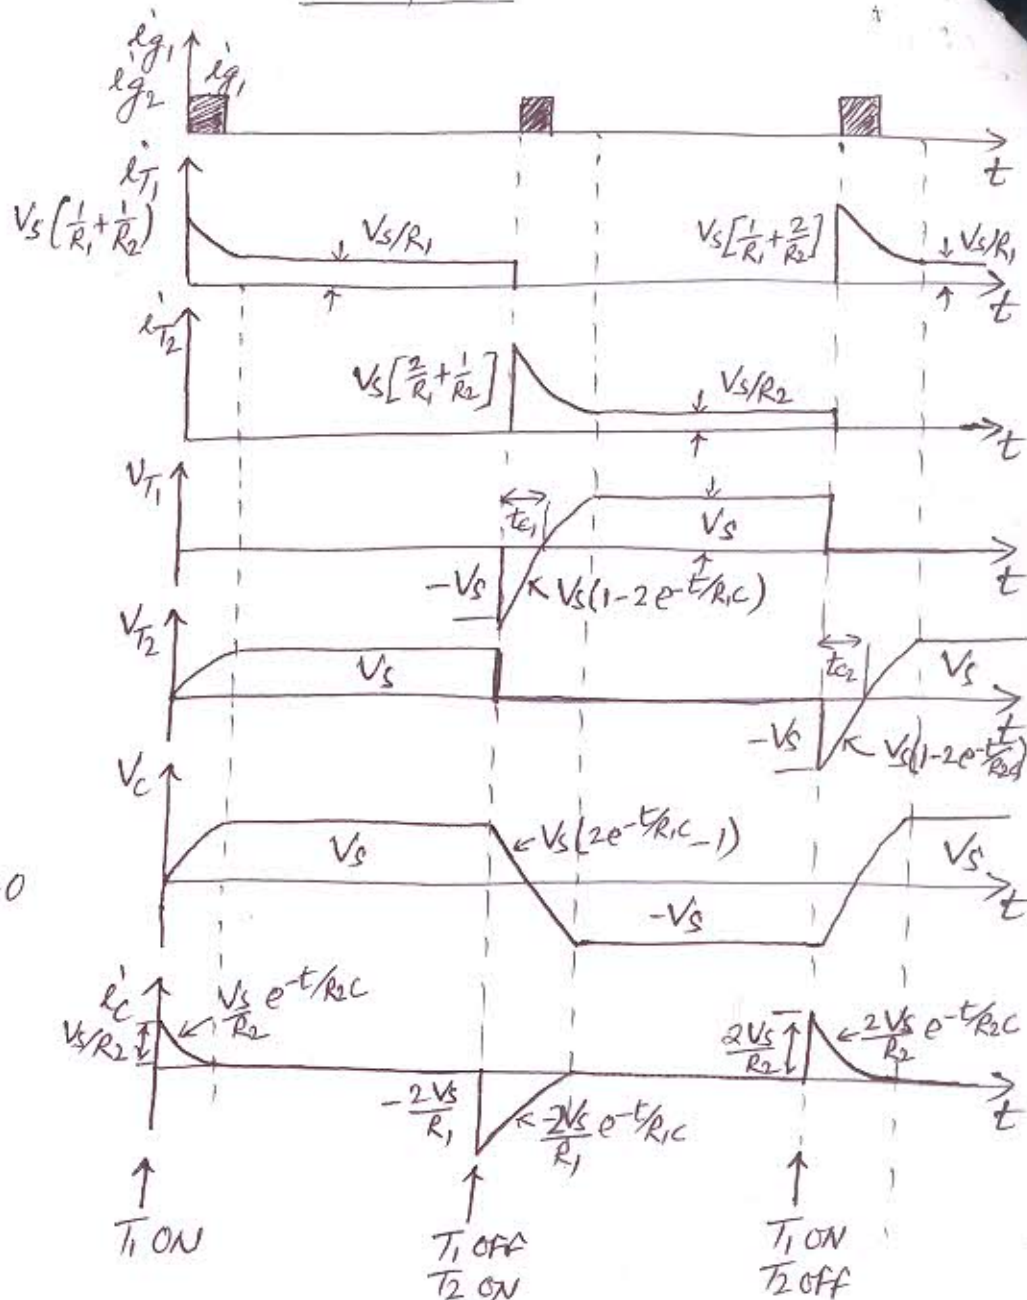 i_g₁
i_g₂ i_g₁
t
i_T₁
V_S(1/R₁ + 1/R₂) V_S/R₁ V_S[1/R₁ + 2/R₂] V_S/R₁
t
i_T₂
V_S[2/R₁ + 1/R₂] V_S/R₂
t
V_T₁
t_c₁ V_S
-V_S V_S(1-2e^-t/R₁C) t
V_T₂
V_S t_c₂ V_S
t
-V_S V_S(1-2e^-t/R₂C)
V_C
V_S V_S(2e^-t/R₁C -1) V_S
0 -V_S t
i_C V_S/R₂ e^-t/R₂C
V_S/R₂ 2V_S/R₂ 2V_S/R₂ e^-t/R₂C
-2V_S/R₁ -2V_S/R₁ e^-t/R₁C t
T₁ ON T₁ OFF T₁ ON
T₂ ON T₂ OFF